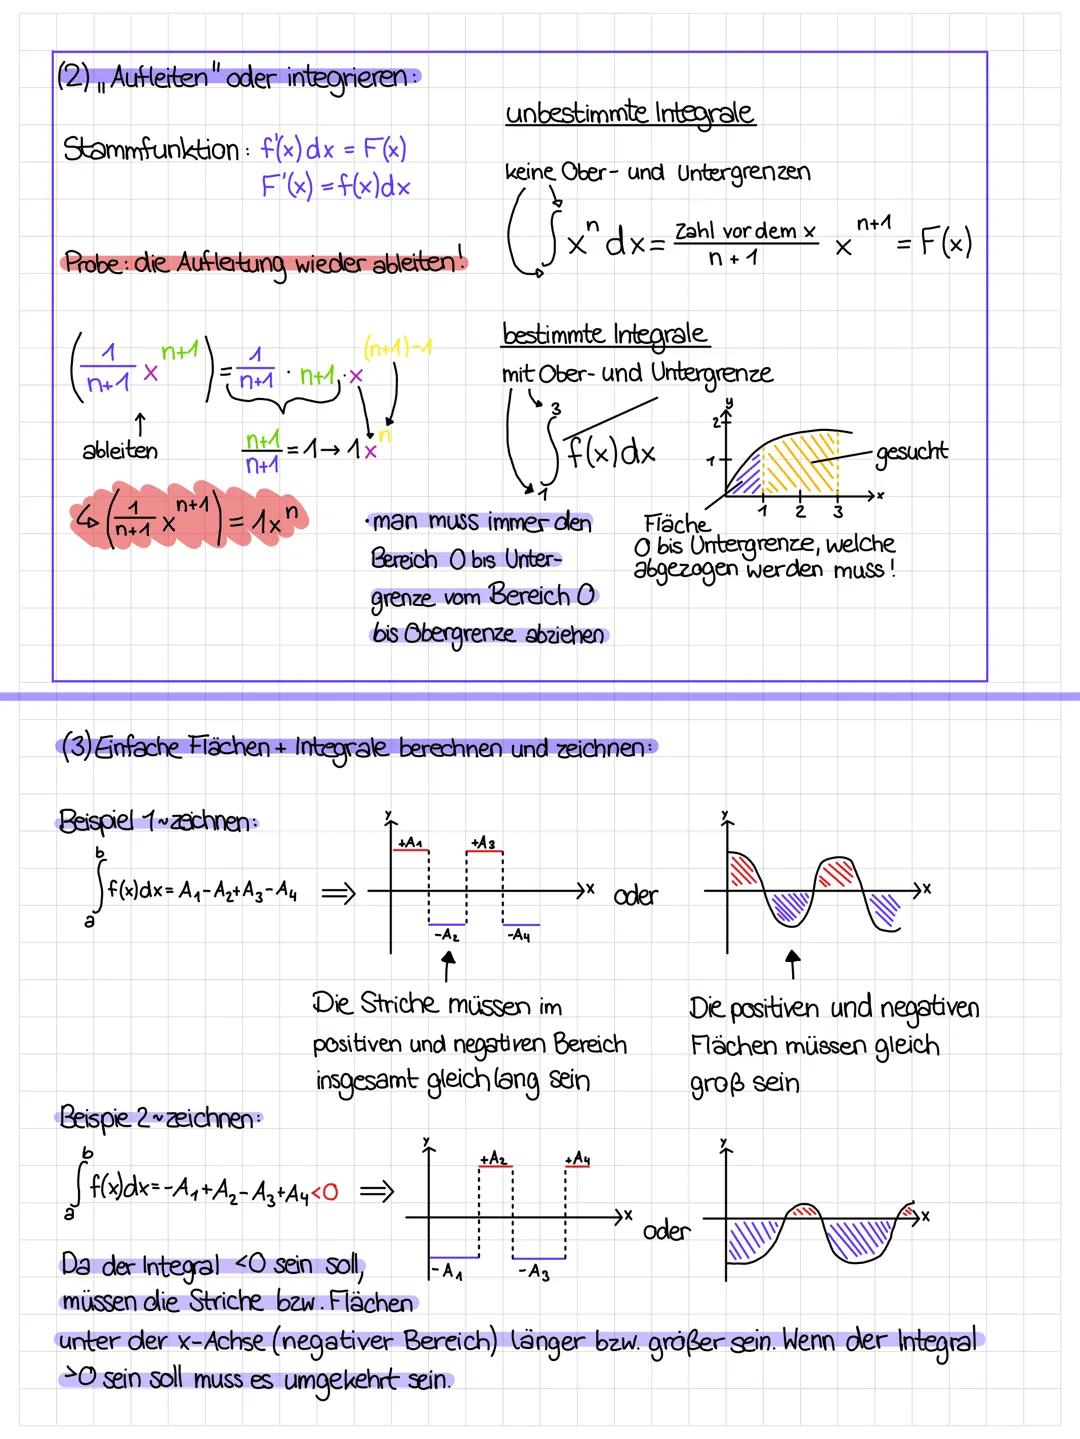 (2) „Aufleiten" oder integrieren:
Stammfunktion: f'(x)dx = F(x)
F'(x) = f(x)dx
Probe: die Aufleitung wieder ableiten!
(1/n+1 x^n+1) = 1/n+1 · n+1 · x^(n+1)-1
ableiten
n+1/n+1 = 1 → 1x^n
↳ (1/n+1 x^n+1) = 1x^n
unbestimmte Integrale
keine Ober- und Untergrenzen
∫ x^n dx = Zahl vor dem x/n+1 x^n+1 = F(x)
bestimmte Integrale
mit Ober- und Untergrenze
3
∫ f(x)dx
1
y
2
1
gesucht
1 2 3
x
Fläche
0 bis Untergrenze, welche
abgezogen werden muss!
·man muss immer den
Bereich 0 bis Unter-
grenze vom Bereich 0
bis Obergrenze abziehen
(3) Einfache Flächen + Integrale berechnen und zeichnen:
Beispiel 1~zeichnen:
b
∫ f(x)dx = A₁-A₂+A₃-A₄ ⇒
a
y
+A₁ +A₃
x
-A₂ -A₄
oder
y
x
Die Striche müssen im
positiven und negativen Bereich
insgesamt gleich lang sein
Die positiven und negativen
Flächen müssen gleich
groß sein
Beispie 2~zeichnen:
b
∫ f(x)dx = -A₁+A₂-A₃+A₄<0 ⇒
a
y
+A₂ +A₄
x
-A₁ -A₃
oder
y
x
Da der Integral <0 sein soll,
müssen die Striche bzw. Flächen
unter der x-Achse (negativer Bereich) länger bzw. größer sein. Wenn der Integral
>0 sein soll muss es umgekehrt sein.